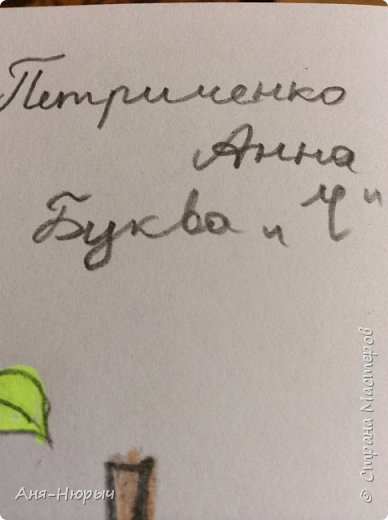 Петрименко
Анна
Буква „Ч"
Аня-Нюрыч
© Страна Мастеров